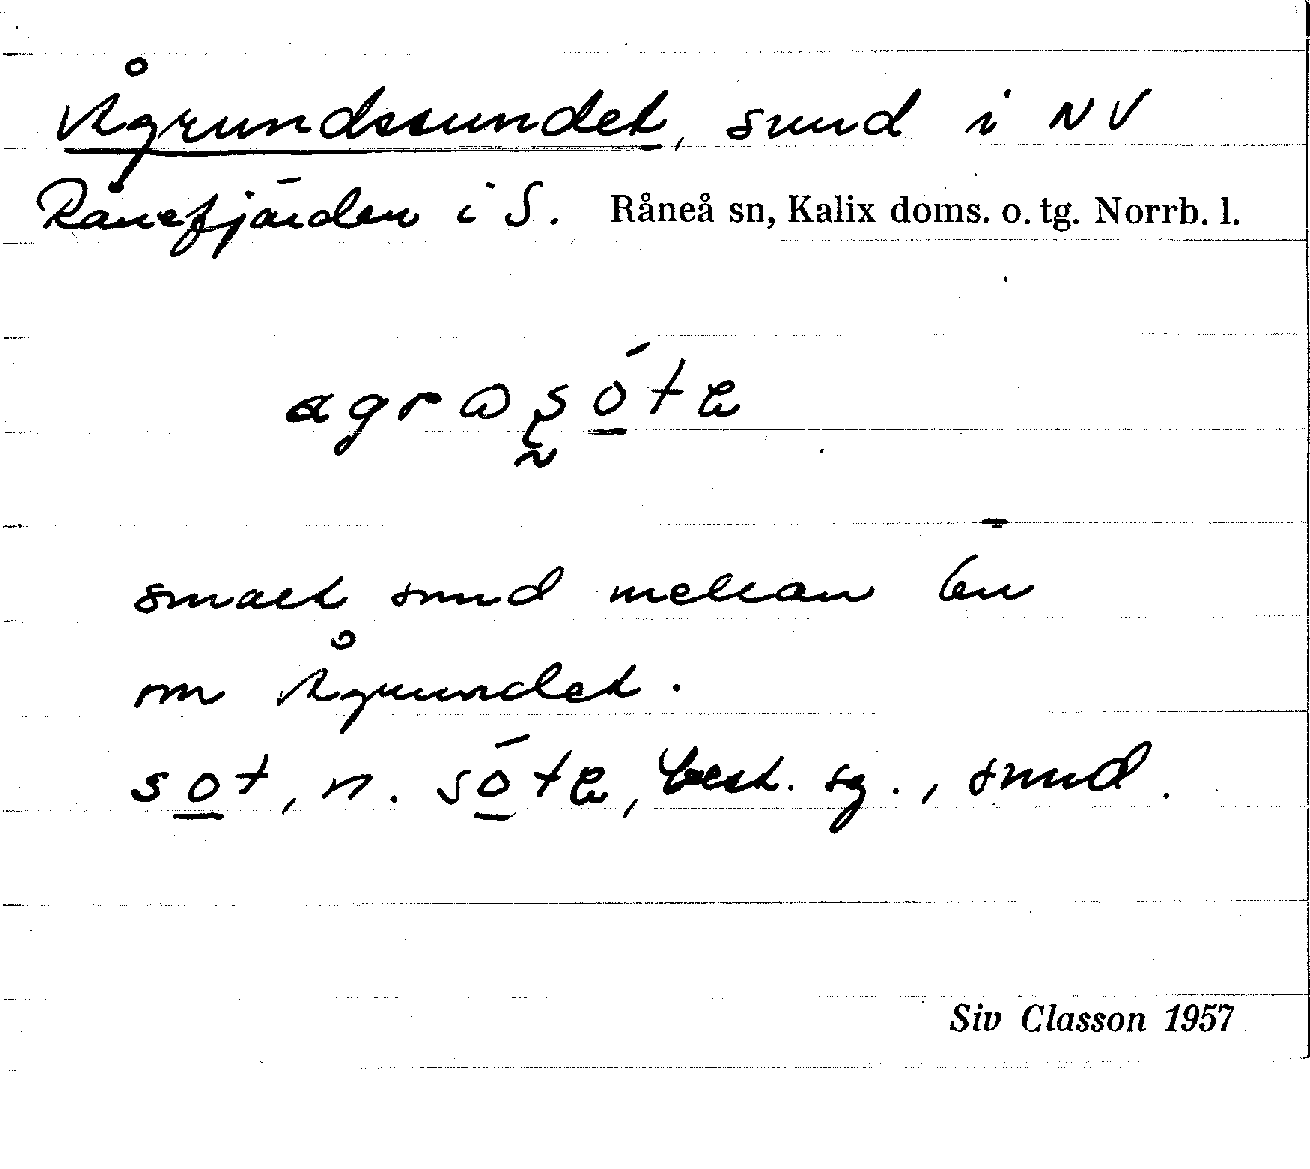 Ågrundssundet, sund i NV
Rånefjärden i S. Råneå sn, Kalix doms. o. tg. Norrb. l.
smalt sund mellan en
om Ågrundet.
sot, n. sóte, best. sg., sund.
Siv Classon 1957